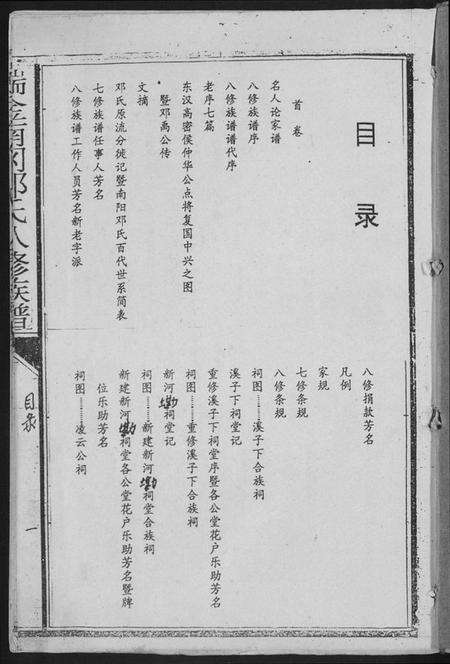 目录
首卷
名人论家谱
八修族谱序
八修族谱谱代序
老序七篇
东汉高密侯仲华公点将复国中兴之图
暨邓禹公传
文摘
邓氏原流分徙记暨南阳邓氏百代世系简表
七修族谱任事人芳名
八修族谱工作人员芳名新老字派
八修捐款芳名
凡例
家规
七修条规
八修条规
祠图………溪子下合族祠
溪子下祠堂记
重修溪子下祠堂序暨各公堂花户乐助芳名
祠图………重修溪子下合族祠
新河㘭祠堂记
祠图………新建新河㘭祠堂合族祠
新建新河㘭祠堂各公堂花户乐助芳名暨牌
位乐助芳名
祠图………凌云公祠
邓氏八修族谱
目录
一